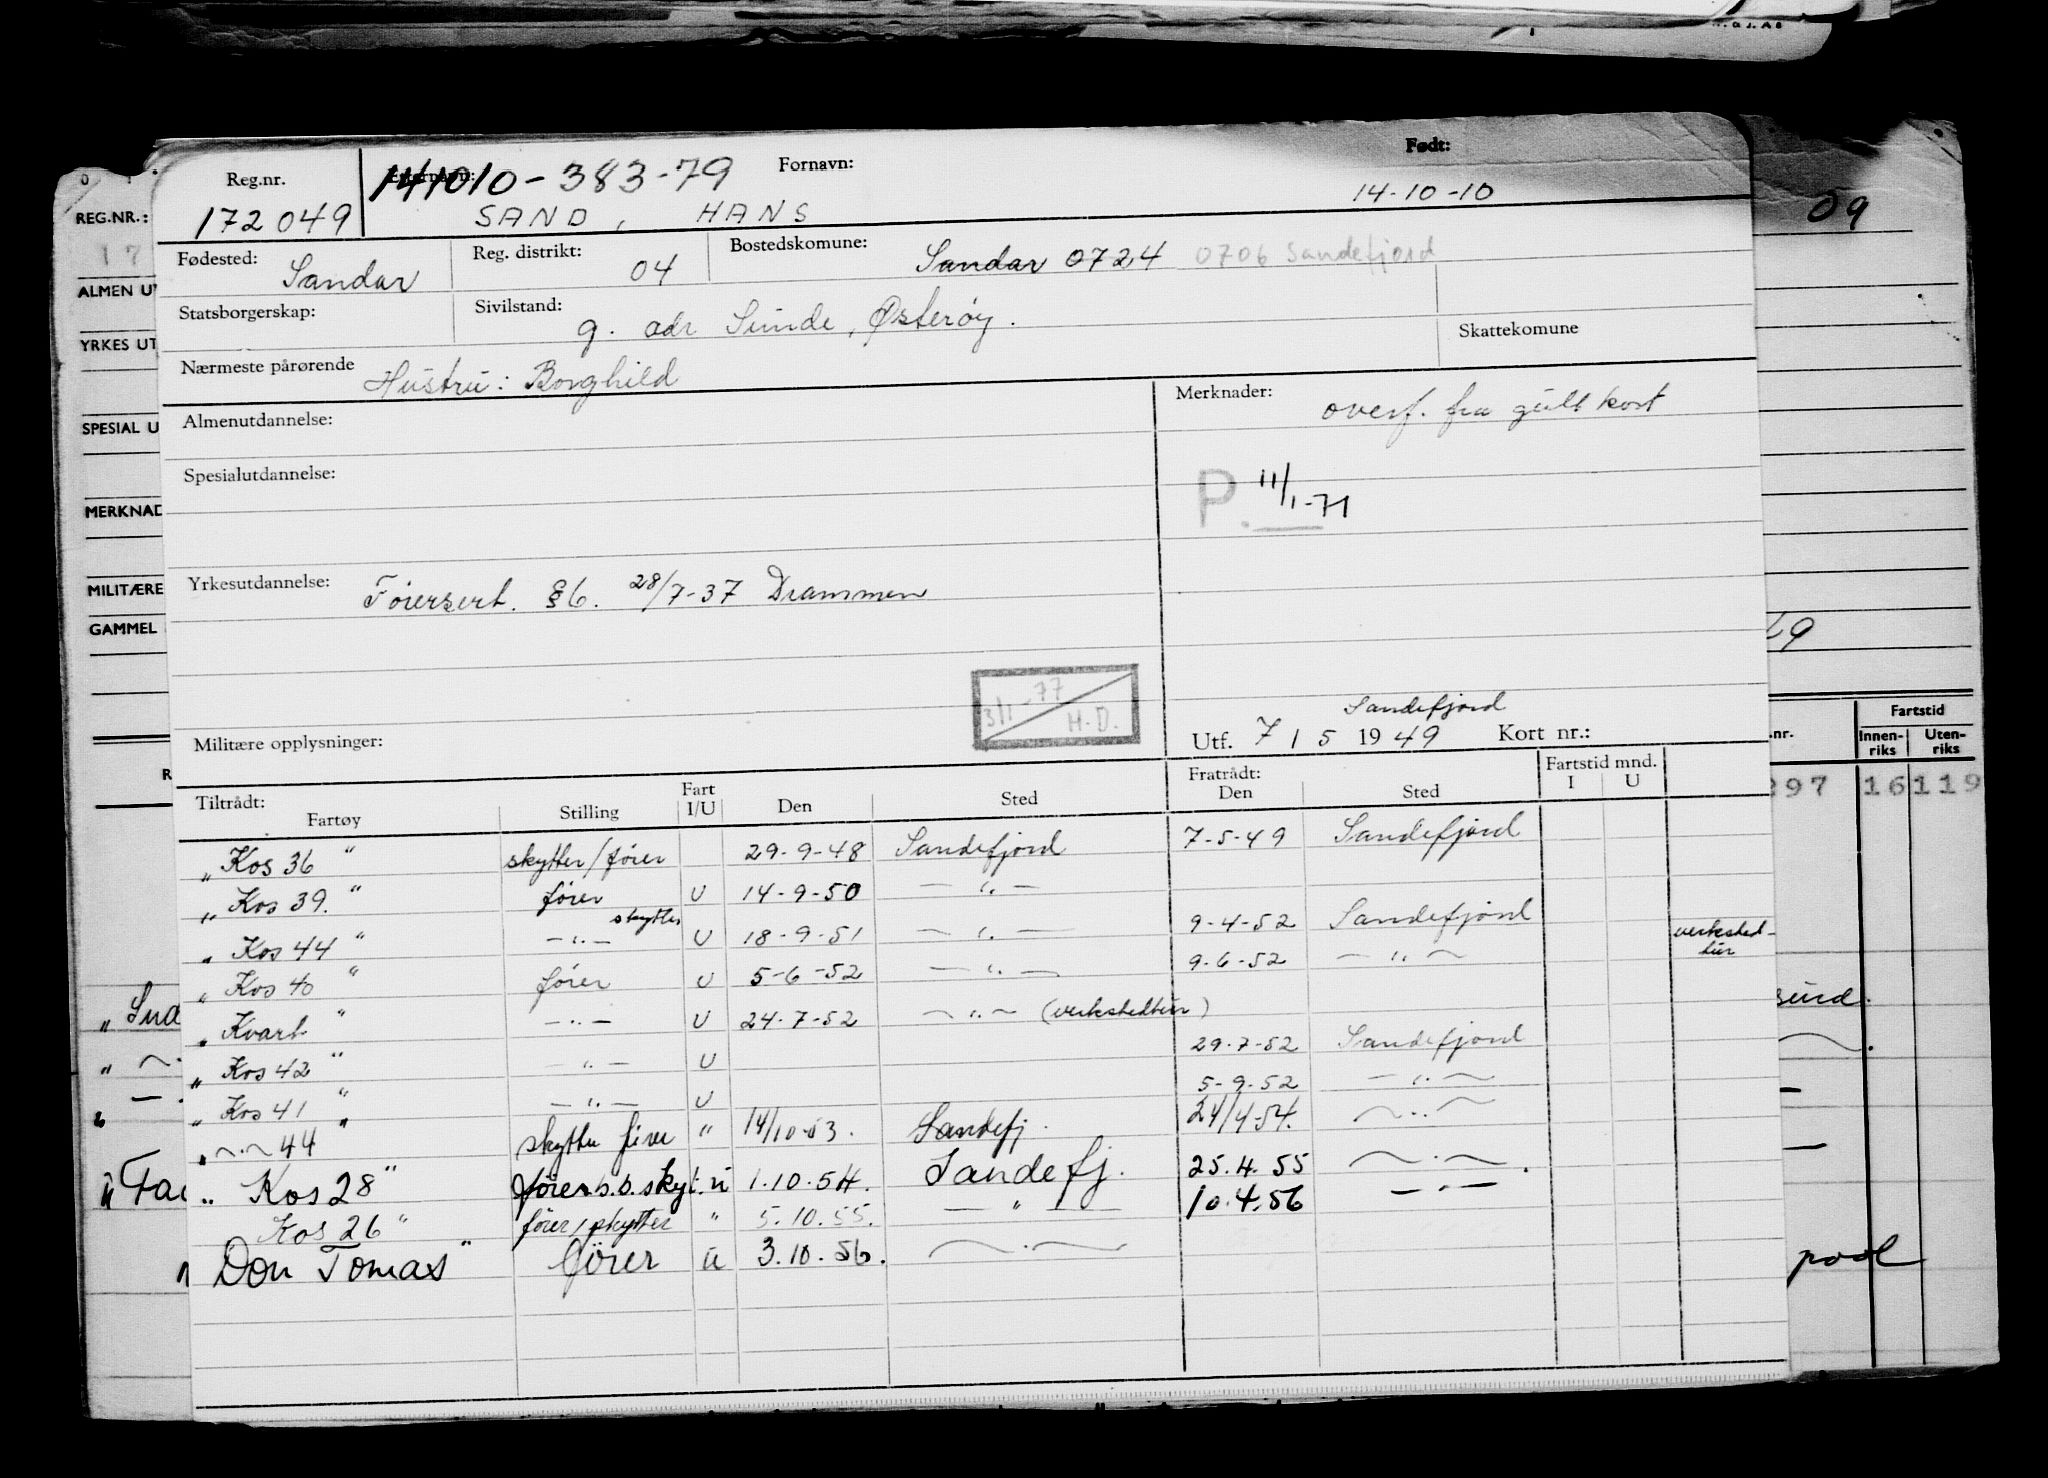 M.G.J.AS
Reg.nr. Etternavn: 141010-383-79 Fornavn: Født:
172049 SAND, HANS 14-10-10
REG.NR.: 09
17
Fødested: Sandar Reg. distrikt: 04 Bostedskomune: Sandar 0724 0706 Sandefjord
ALMEN UT
Statsborgerskap: Sivilstand: g. adr Sunde, Østerøy. Skattekomune
YRKES UT
Nærmeste pårørende Hustru: Borghild
Almenutdannelse: Merknader: overf. fra gult kort
SPESIAL U
Spesialutdannelse: P. 11/1-71
MERKNAD
Yrkesutdannelse: Førersert. §6. 28/7-37 Drammen
MILITÆRE
GAMMEL
69
3/1-77 H.D.
Sandefjord
Militære opplysninger: Utf. 7/5 1949 Kort nr.:
Fartstid
.nr. Innenriks Utenriks
297 16 119
Tiltrådt: Fart Fratrådt: Fartstid mnd.
Fartøy Stilling I/U Den Sted Den Sted I U
„Kos 36" skytter/fører 29-9-48 Sandefjord 7-5-49 Sandefjord
„Kos 39." fører U 14-9-50 —„—
„Kos 44" —„— skytter U 18-9-51 —„— 9-4-52 Sandefjord
„Kos 40" fører U 5-6-52 —„— 9-6-52 —„— verkstedtur
„Kvart" —„— U 24-7-52 —„— (verkstedtur)
„Kos 42" —„— U 29-7-52 Sandefjord
„Kos 41" —„— U 5-9-52 —„—
„—„— 44" skytter fører " 14/10-53. Sandefj. 24/4-54. —„—
„Kos 28" fører s.s. skyt. u 1.10.54. Sandefj. 25.4.55 —„—.
Kos 26" fører/skytter " 5.10.55. —"— 10.4.56 —„—
"Don Tomas" fører u 3.10.56. —„—
pool